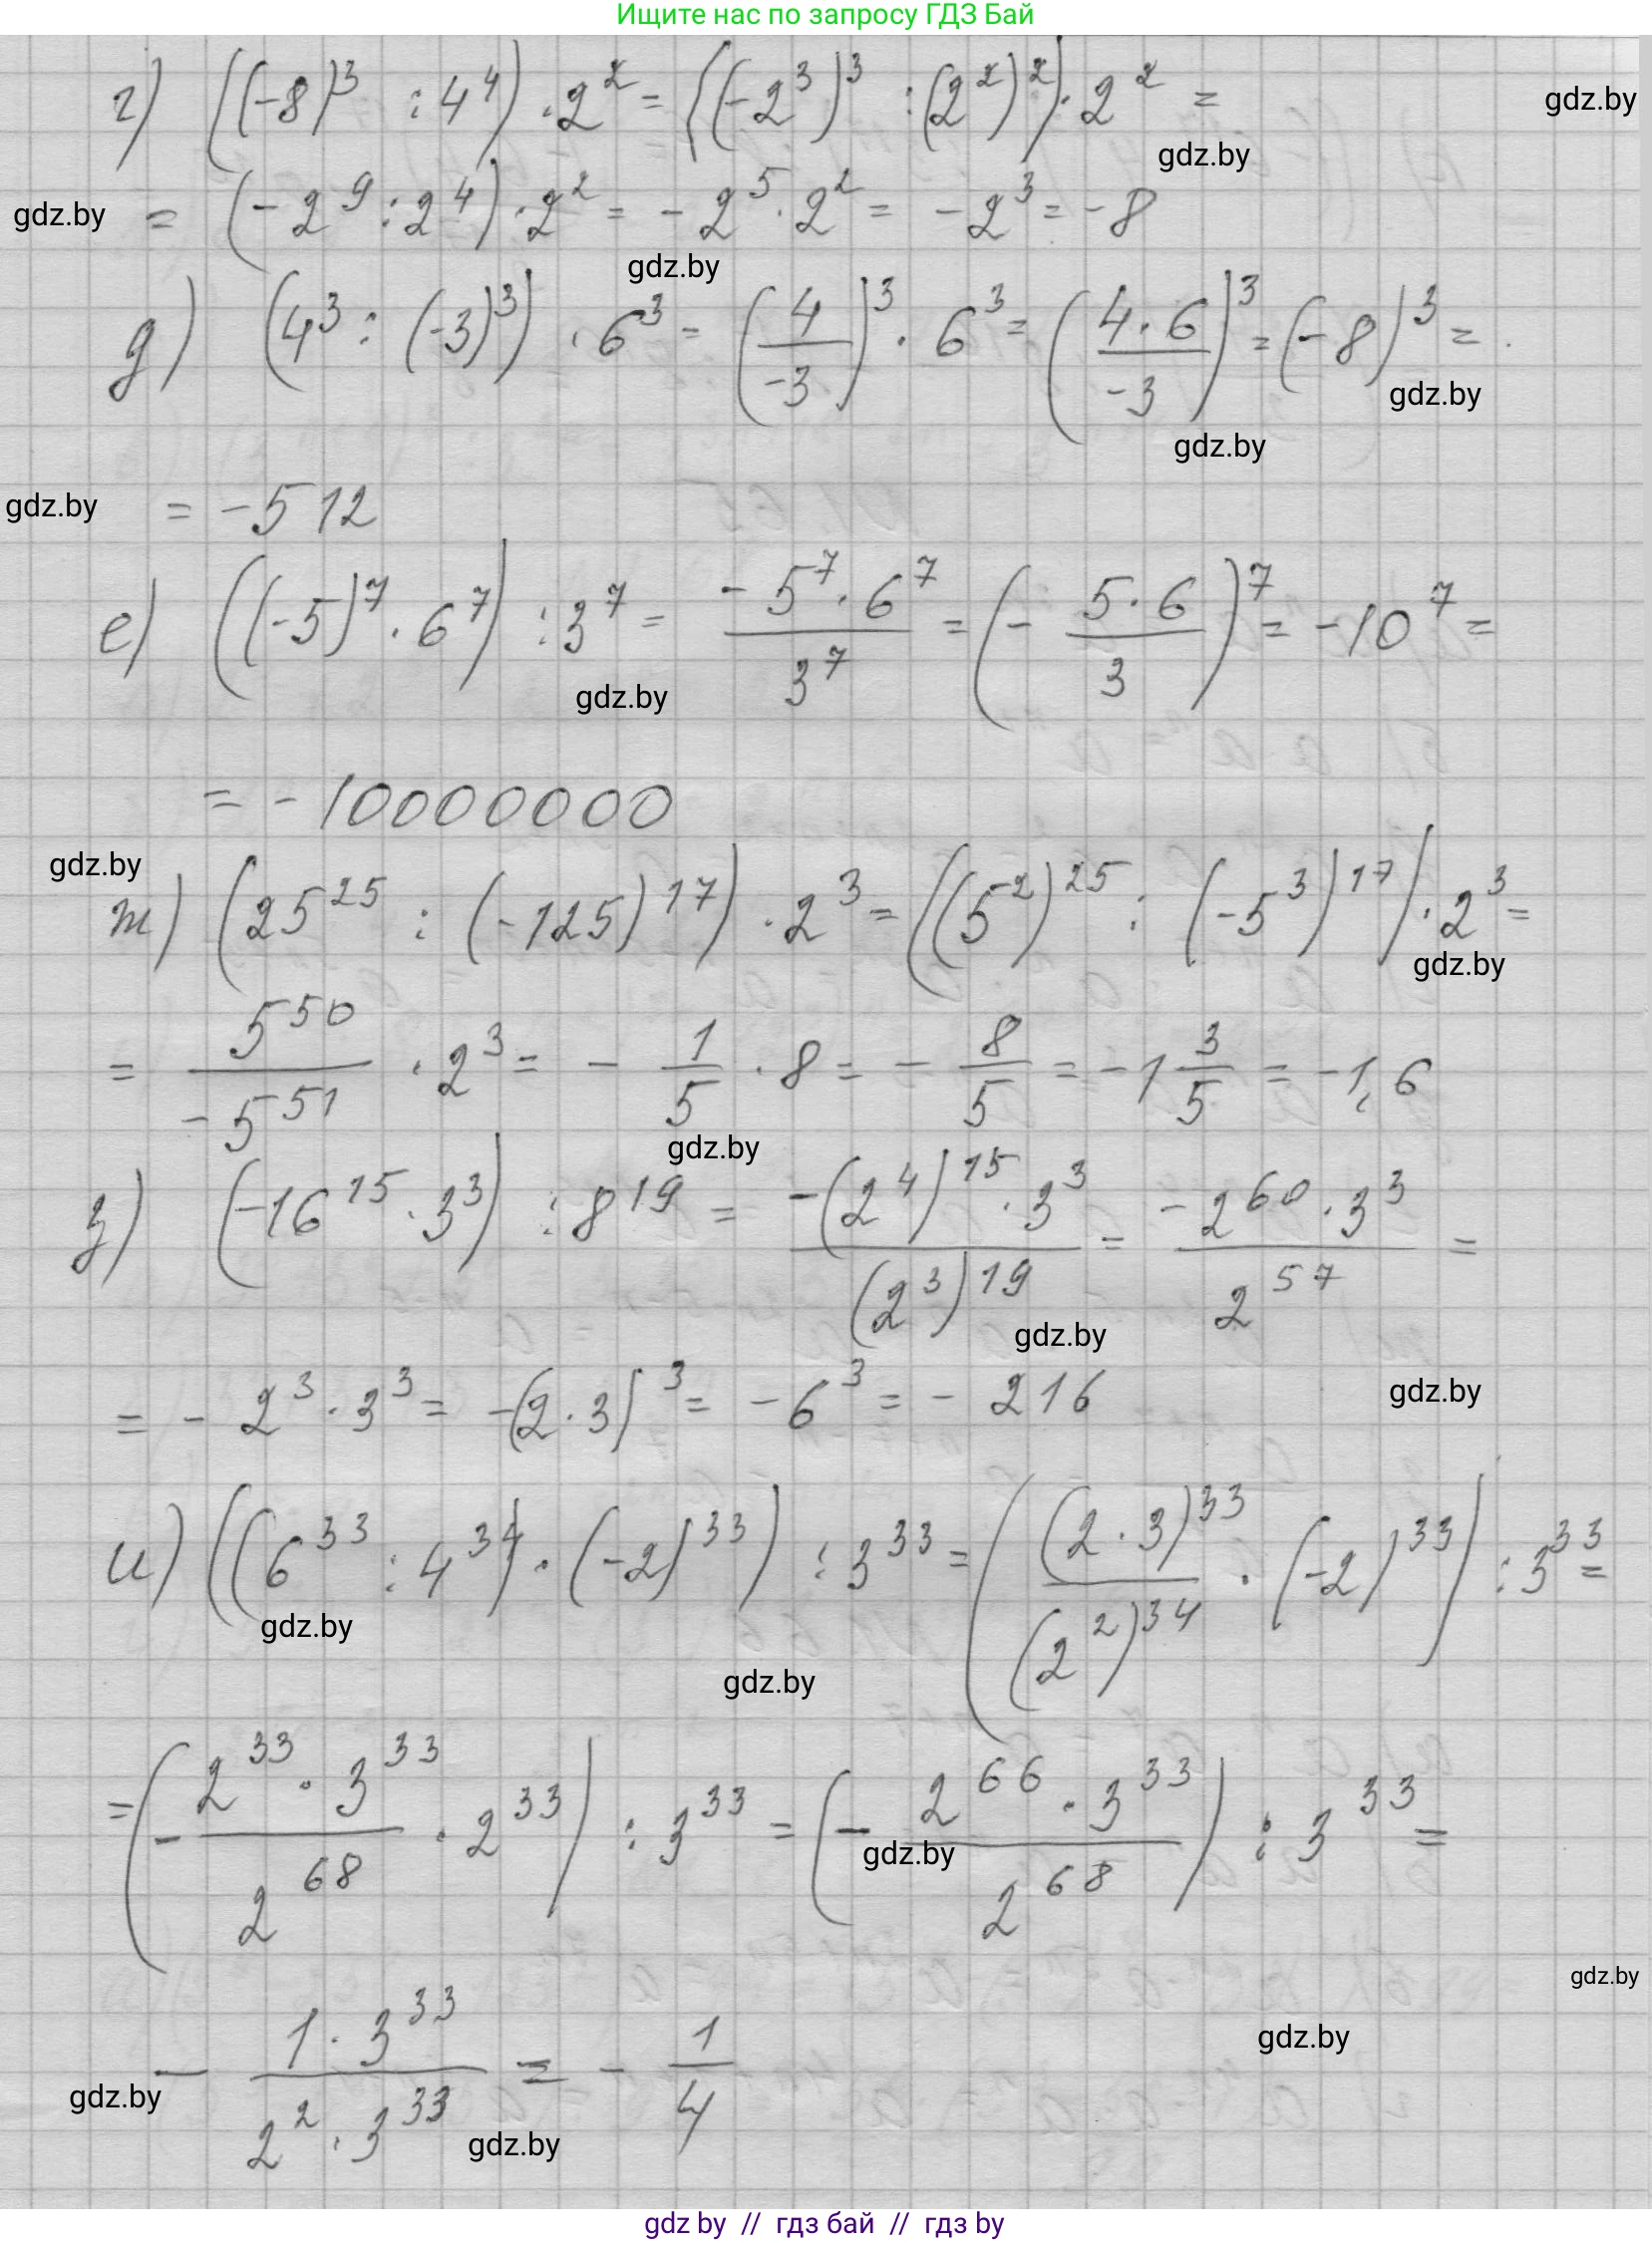 Ищите нас по запросу ГДЗ Бай
г) ((-8)³ : 4⁴) · 2² = ((-2³)³ : (2²)²) · 2² =
gdz.by
gdz.by
= (-2⁹ : 2⁴) · 2² = -2⁵ · 2² = -2³ = -8
gdz.by
gdz.by
д) (4³ : (-3)³) · 6³ = (4/-3)³ · 6³ = (4·6/-3)³ = (-8)³ =
gdz.by
gdz.by
= -512
gdz.by
е) ((-5)⁷ · 6⁷) : 3⁷ = -5⁷·6⁷/3⁷ = (- 5·6/3)⁷ = -10⁷ =
gdz.by
= -10000000
gdz.by
ж) (25²⁵ : (-125)¹⁷) · 2³ = ((5²)²⁵ : (-5³)¹⁷) · 2³ =
gdz.by
= 5⁵⁰/-5⁵¹ · 2³ = - 1/5 · 8 = - 8/5 = -1 3/5 = -1,6
gdz.by
з) (-16¹⁵ · 3³) : 8¹⁹ = -(2⁴)¹⁵ · 3³/(2³)¹⁹ = -2⁶⁰ · 3³/2⁵⁷ =
gdz.by
= - 2³ · 3³ = -(2·3)³ = -6³ = - 216
gdz.by
и) ((6³³ : 4³⁴) · (-2)³³) : 3³³ = ((2·3)³³/(2²)³⁴ · (-2)³³) : 3³³ =
gdz.by
gdz.by
= (- 2³³ · 3³³/2⁶⁸ · 2³³) : 3³³ = (- 2⁶⁶ · 3³³/2⁶⁸) : 3³³ =
gdz.by
gdz.by
- 1 · 3³³/2² · 3³³ = - 1/4
gdz.by
gdz.by
gdz.by
gdz by // гдз бай // гдз by